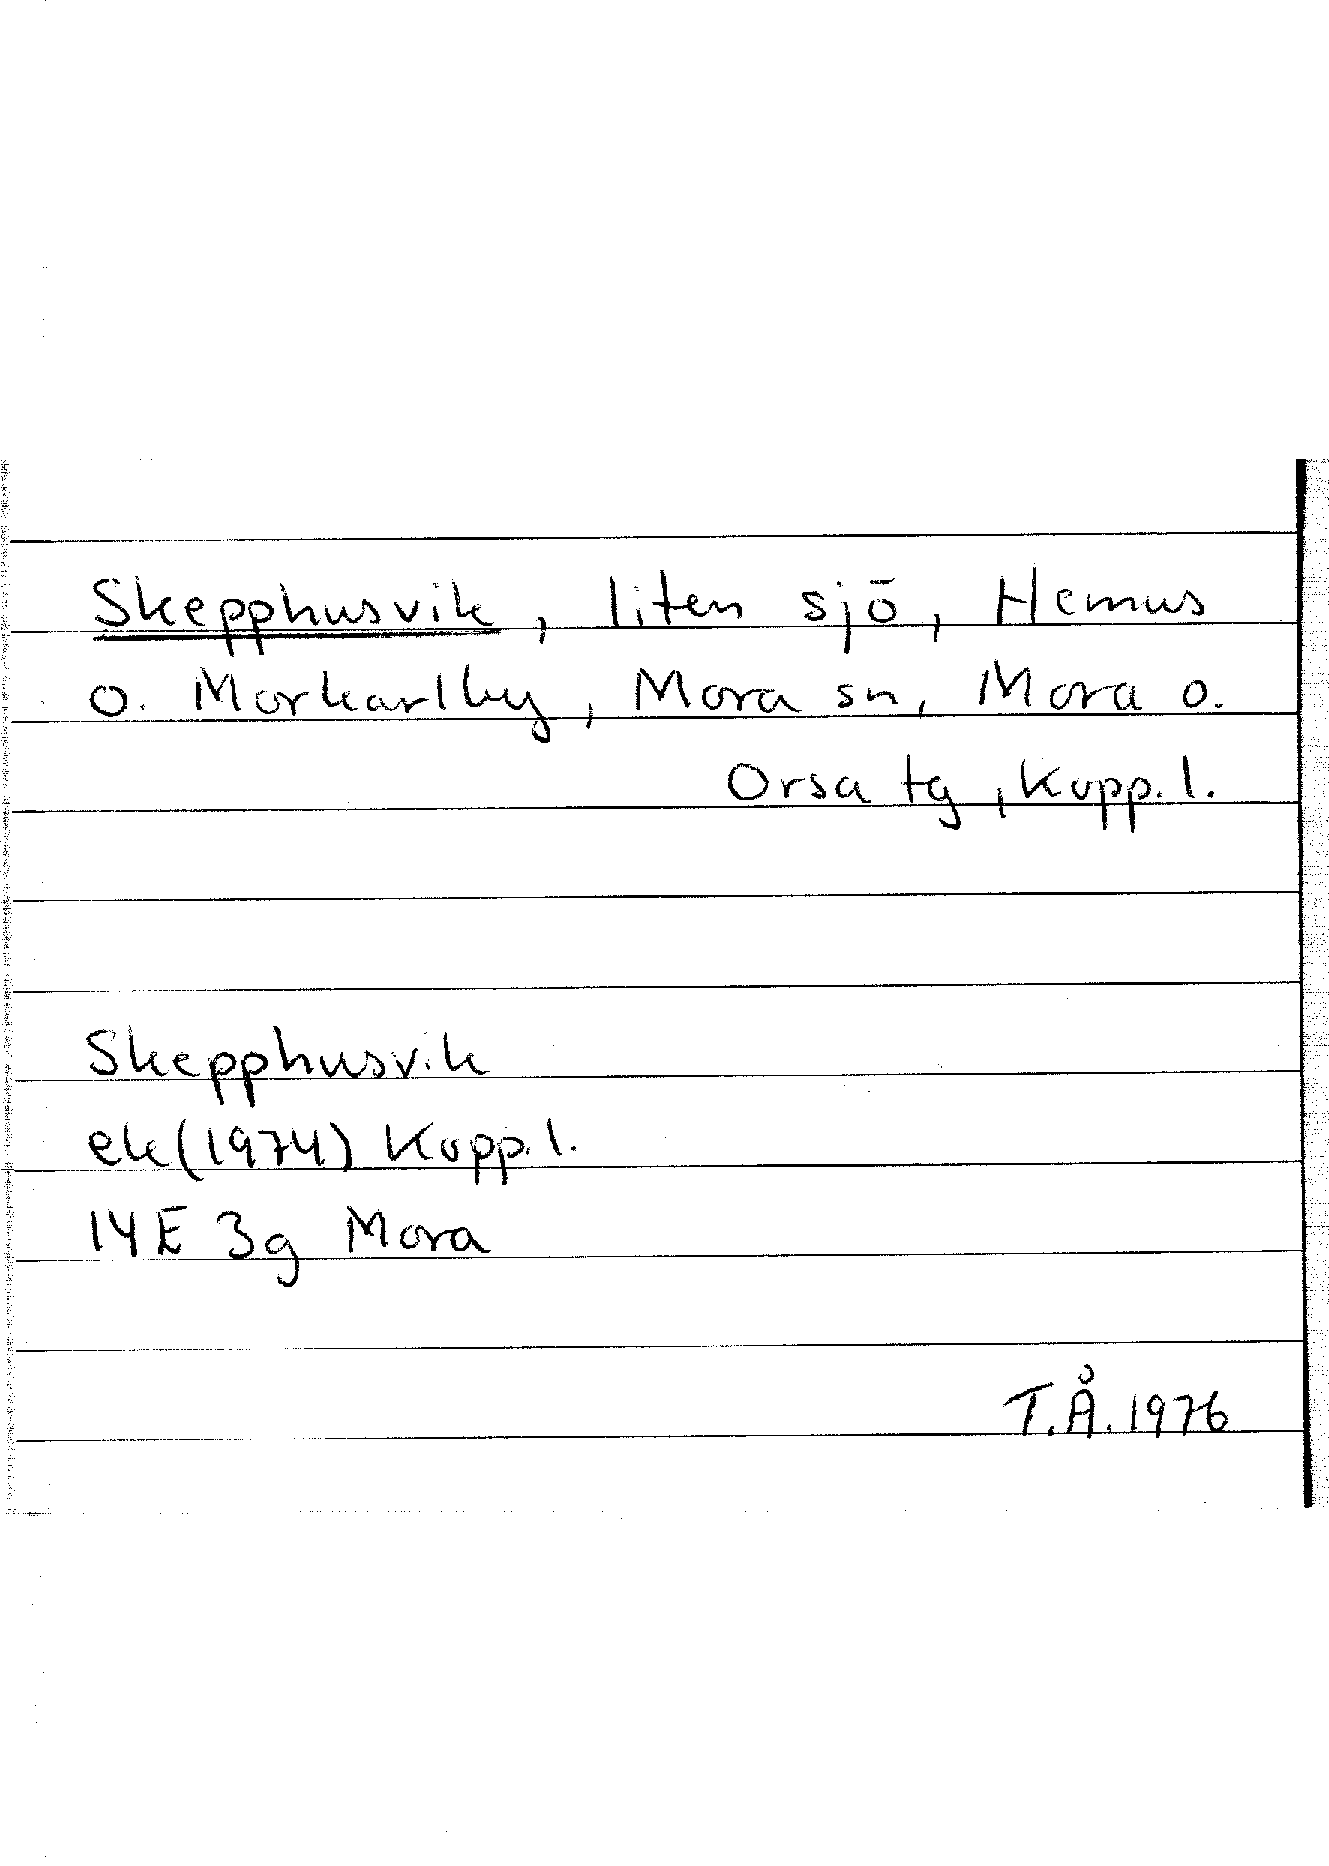 Skepphusvik, liten sjö, Hemus
o. Morkarlby, Mora sn, Mora o.
Orsa tg, Kopp. l.
Skepphusvik
ek (1974) Kopp. l.
14E 3g Mora
T.Å. 1976